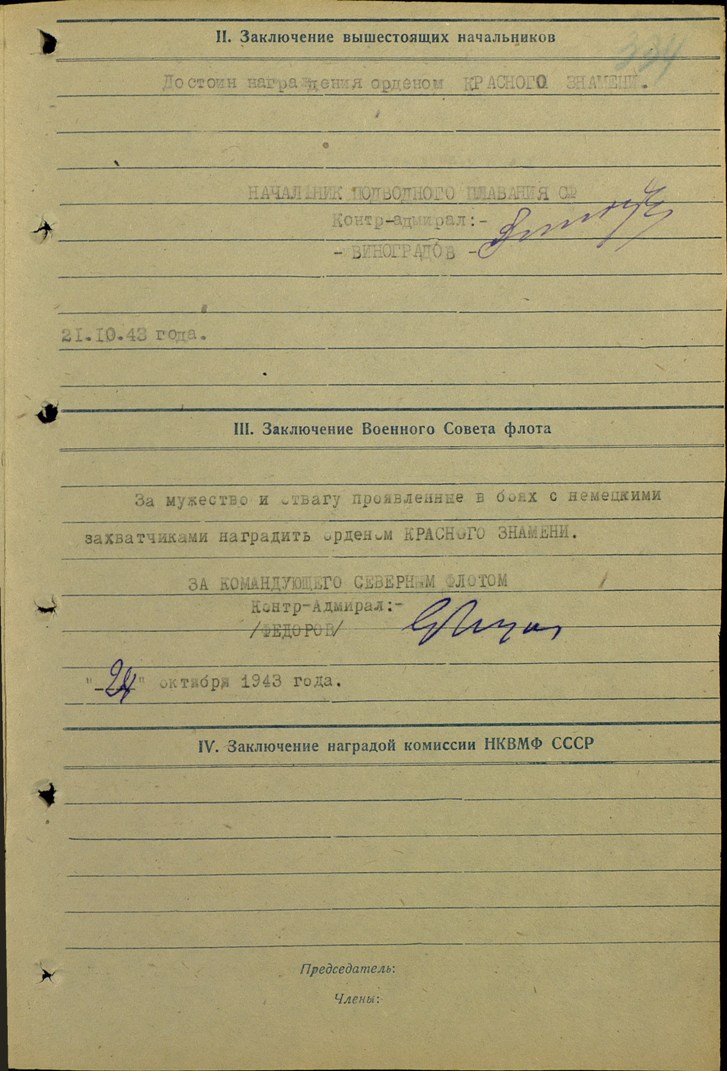 334
II. Заключение вышестоящих начальников
Достоин награждения орденом КРАСНОГО ЗНАМЕНИ.
НАЧАЛЬНИК ПОДВОДНОГО ПЛАВАНИЯ СФ
Контр-адмирал:-
- ВИНОГРАДОВ -
21.10.43 года.
III. Заключение Военного Совета флота
За мужество и отвагу проявленные в боях с немецкими
захватчиками наградить орденом КРАСНОГО ЗНАМЕНИ.
ЗА КОМАНДУЮЩЕГО СЕВЕРНЫМ ФЛОТОМ
Контр-Адмирал:-
/ФЕДОРОВ/
"24" октября 1943 года.
IV. Заключение наградой комиссии НКВМФ СССР
Председатель:
Члены: